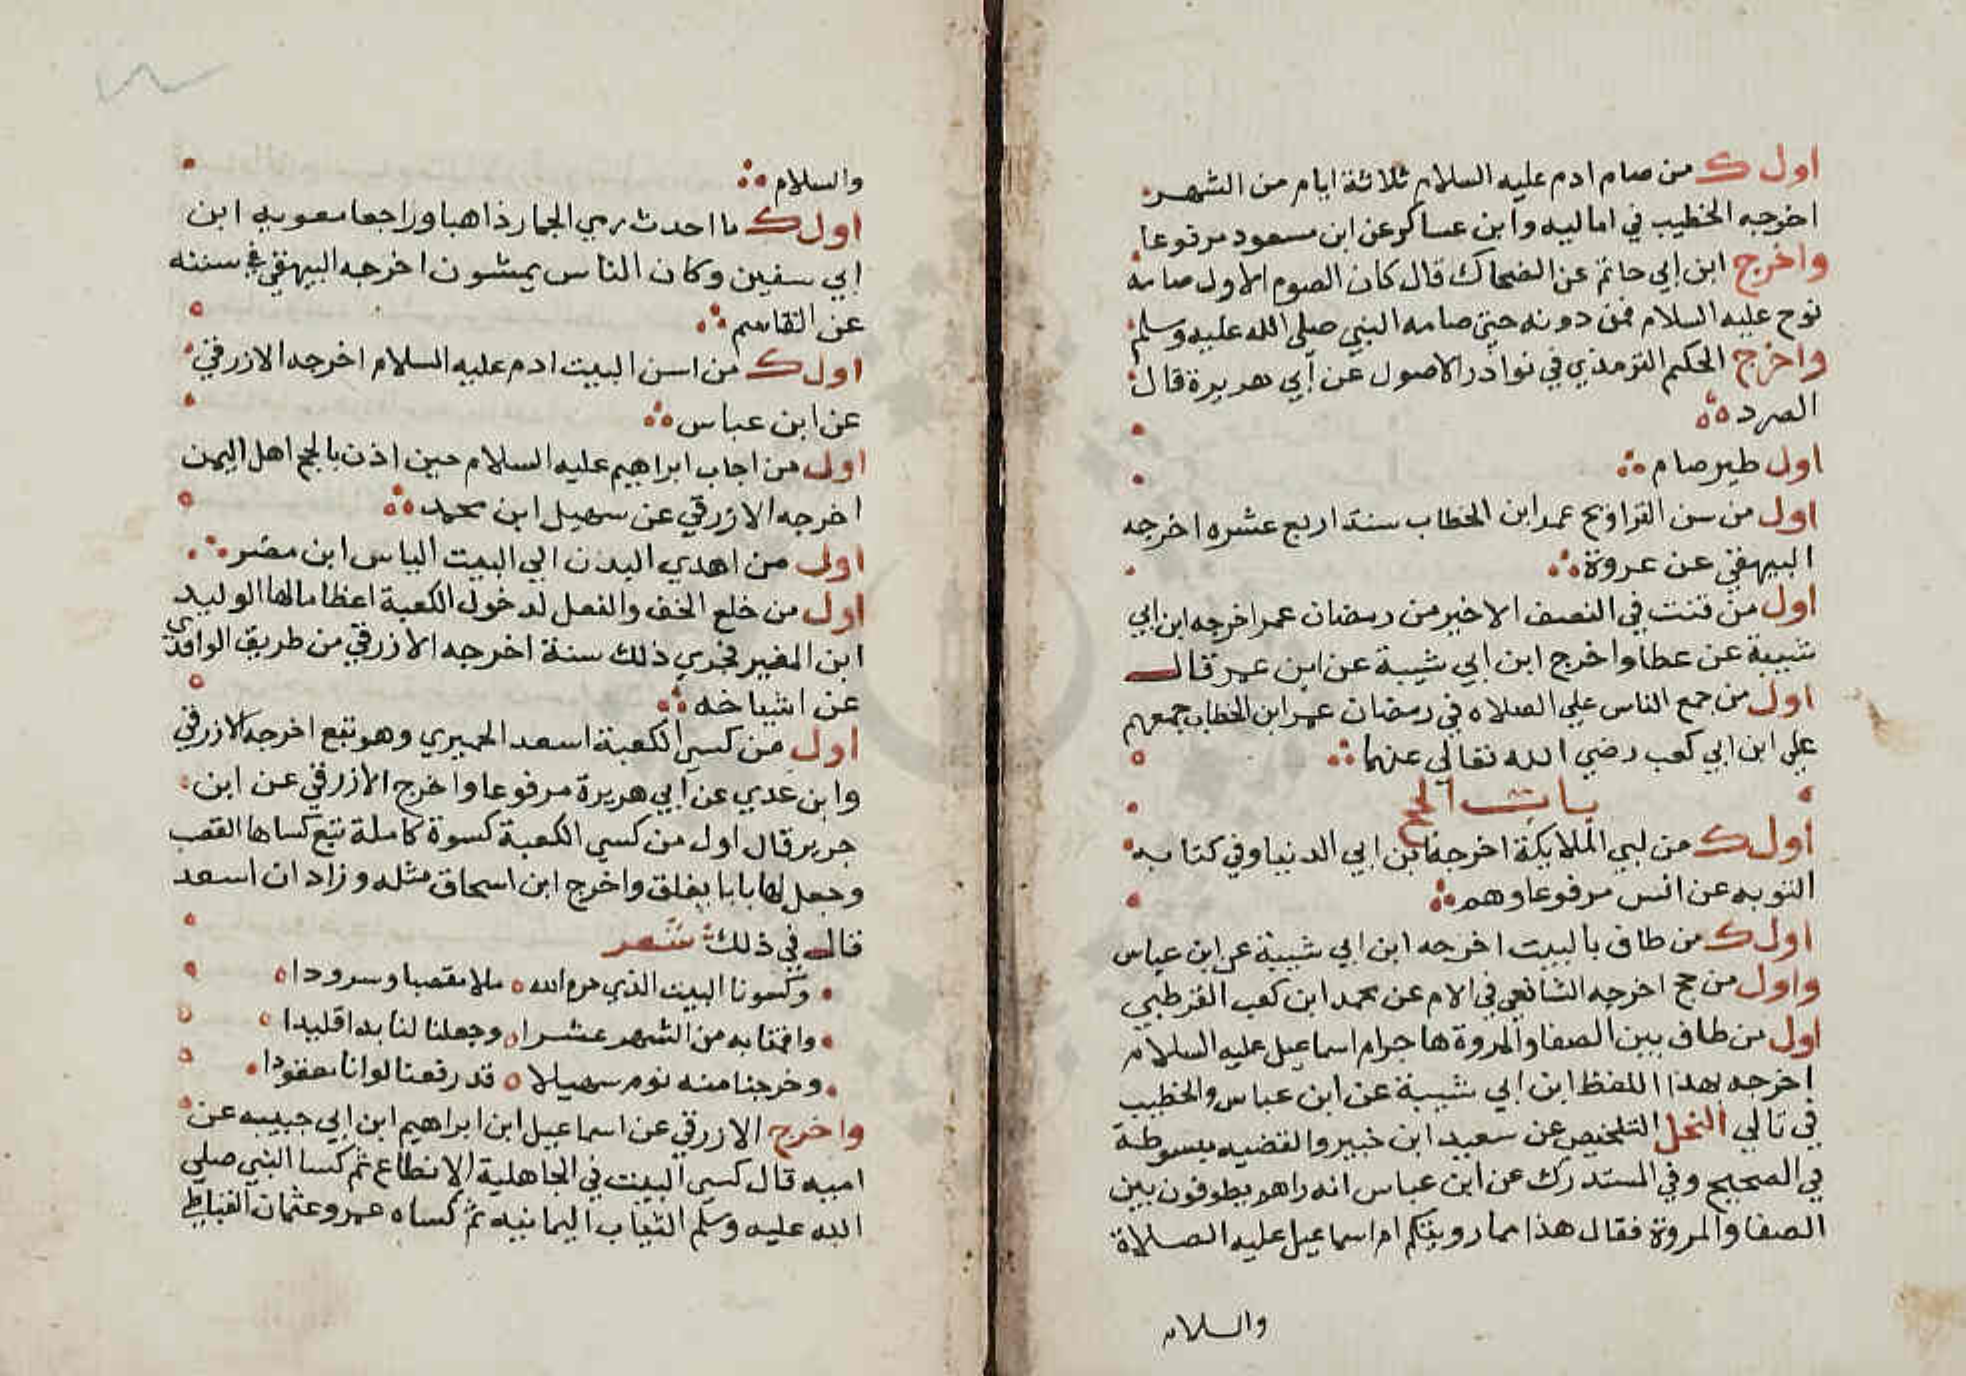 اول ك من صام ادم عليه السلام ثلاثة ايام من الشهر
اخرجه الخطيب في اماليه وابن عساكر عن ابن مسعود مرفوعا
واخرج ابن ابي حاتم عن الضحاك قال كان الصوم الاول صامه
نوح عليه السلام فمن دونه حتى صامه النبي صلى الله عليه وسلم
واخرج الحكيم الترمذي في نوادر الاصول عن ابي هريرة قال
الصرد
اول طير صام
اول من سن التراويح عمر ابن الخطاب سنة اربع عشره اخرجه
البيهقي عن عروة
اول من قنت في النصف الاخير من رمضان عمر اخرجه ابن ابي
شيبة عن عطا واخرج ابن ابي شيبة عن ابن عمر قال
اول من جمع الناس علي الصلاه في رمضان عمر ابن الخطاب جمعهم
علي ابن ابي كعب رضي الله تعالي عنهما
باب الحج
اول ك من لبي الملايكة اخرجه ابن ابي الدنيا وفي كتابه
التوبه عن انس مرفوعا وهم
اول ك من طاف بالبيت اخرجه ابن ابي شيبة عن ابن عباس
واول من حج اخرجه الشافعي في الام عن محمد ابن كعب القرطبي
اول من طاف بين الصفا والمروة هاجر ام اسماعيل عليه السلام
اخرجه بهذا اللفظ ابن ابي شيبة عن ابن عباس والخطيب
في تالي النحل التلخيص عن سعيد ابن خبير والقضيه مبسوطة
في الصحيح وفي المستدرك عن ابن عباس انه راهم يطوفون بين
الصفا والمروة فقال هذا مما رويتكم ام اسماعيل عليه الصلاة
والسلام
والسلام
اول ك ما احدث رمي الجمار ذاهبا وراجعا معويه ابن
ابي سفين وكان الناس يمشون اخرجه البيهقي في سننه
عن القاسم
اول ك من اسن البيت ادم عليه السلام اخرجه الازرقي
عن ابن عباس
اول من اجاب ابراهيم عليه السلام حين اذن بالحج اهل اليمن
اخرجه الازرقي عن سهيل ابن محمد
اول من اهدي البدن الي البيت الياس ابن مضر
اول من خلع الخف والنعل لدخول الكعبة اعظاما لها الوليد
ابن المغير فجري ذلك سنة اخرجه الازرقي من طريق الواقدي
عن اشياخه
اول من كسي الكعبة اسعد الحميري وهو تبع اخرجه الازرقي
وابن عدي عن ابي هريرة مرفوعا واخرج الازرقي عن ابن
جرير قال اول من كسي الكعبة كسوة كاملة تبع كساها القصب
وجعل لها بابا يغلق واخرج ابن اسحاق مثله وزاد ان اسعد
قال في ذلك شعر
وكسونا البيت الذي حرم الله ملا مقصبا وسرودا
واقمنا به من الشهر عشرا وجعلنا لنا به اقليدا
وخرجنا منه نوم سهيلا قد رفعنا لوانا معقودا
واخرج الازرقي عن اسماعيل ابن ابراهيم ابن ابي حبيبه عن
اميه قال كسي البيت في الجاهلية الانطاع ثم كسا النبي صلي
الله عليه وسلم الثياب اليمانيه ثم كساه عمر وعثمان القباطي